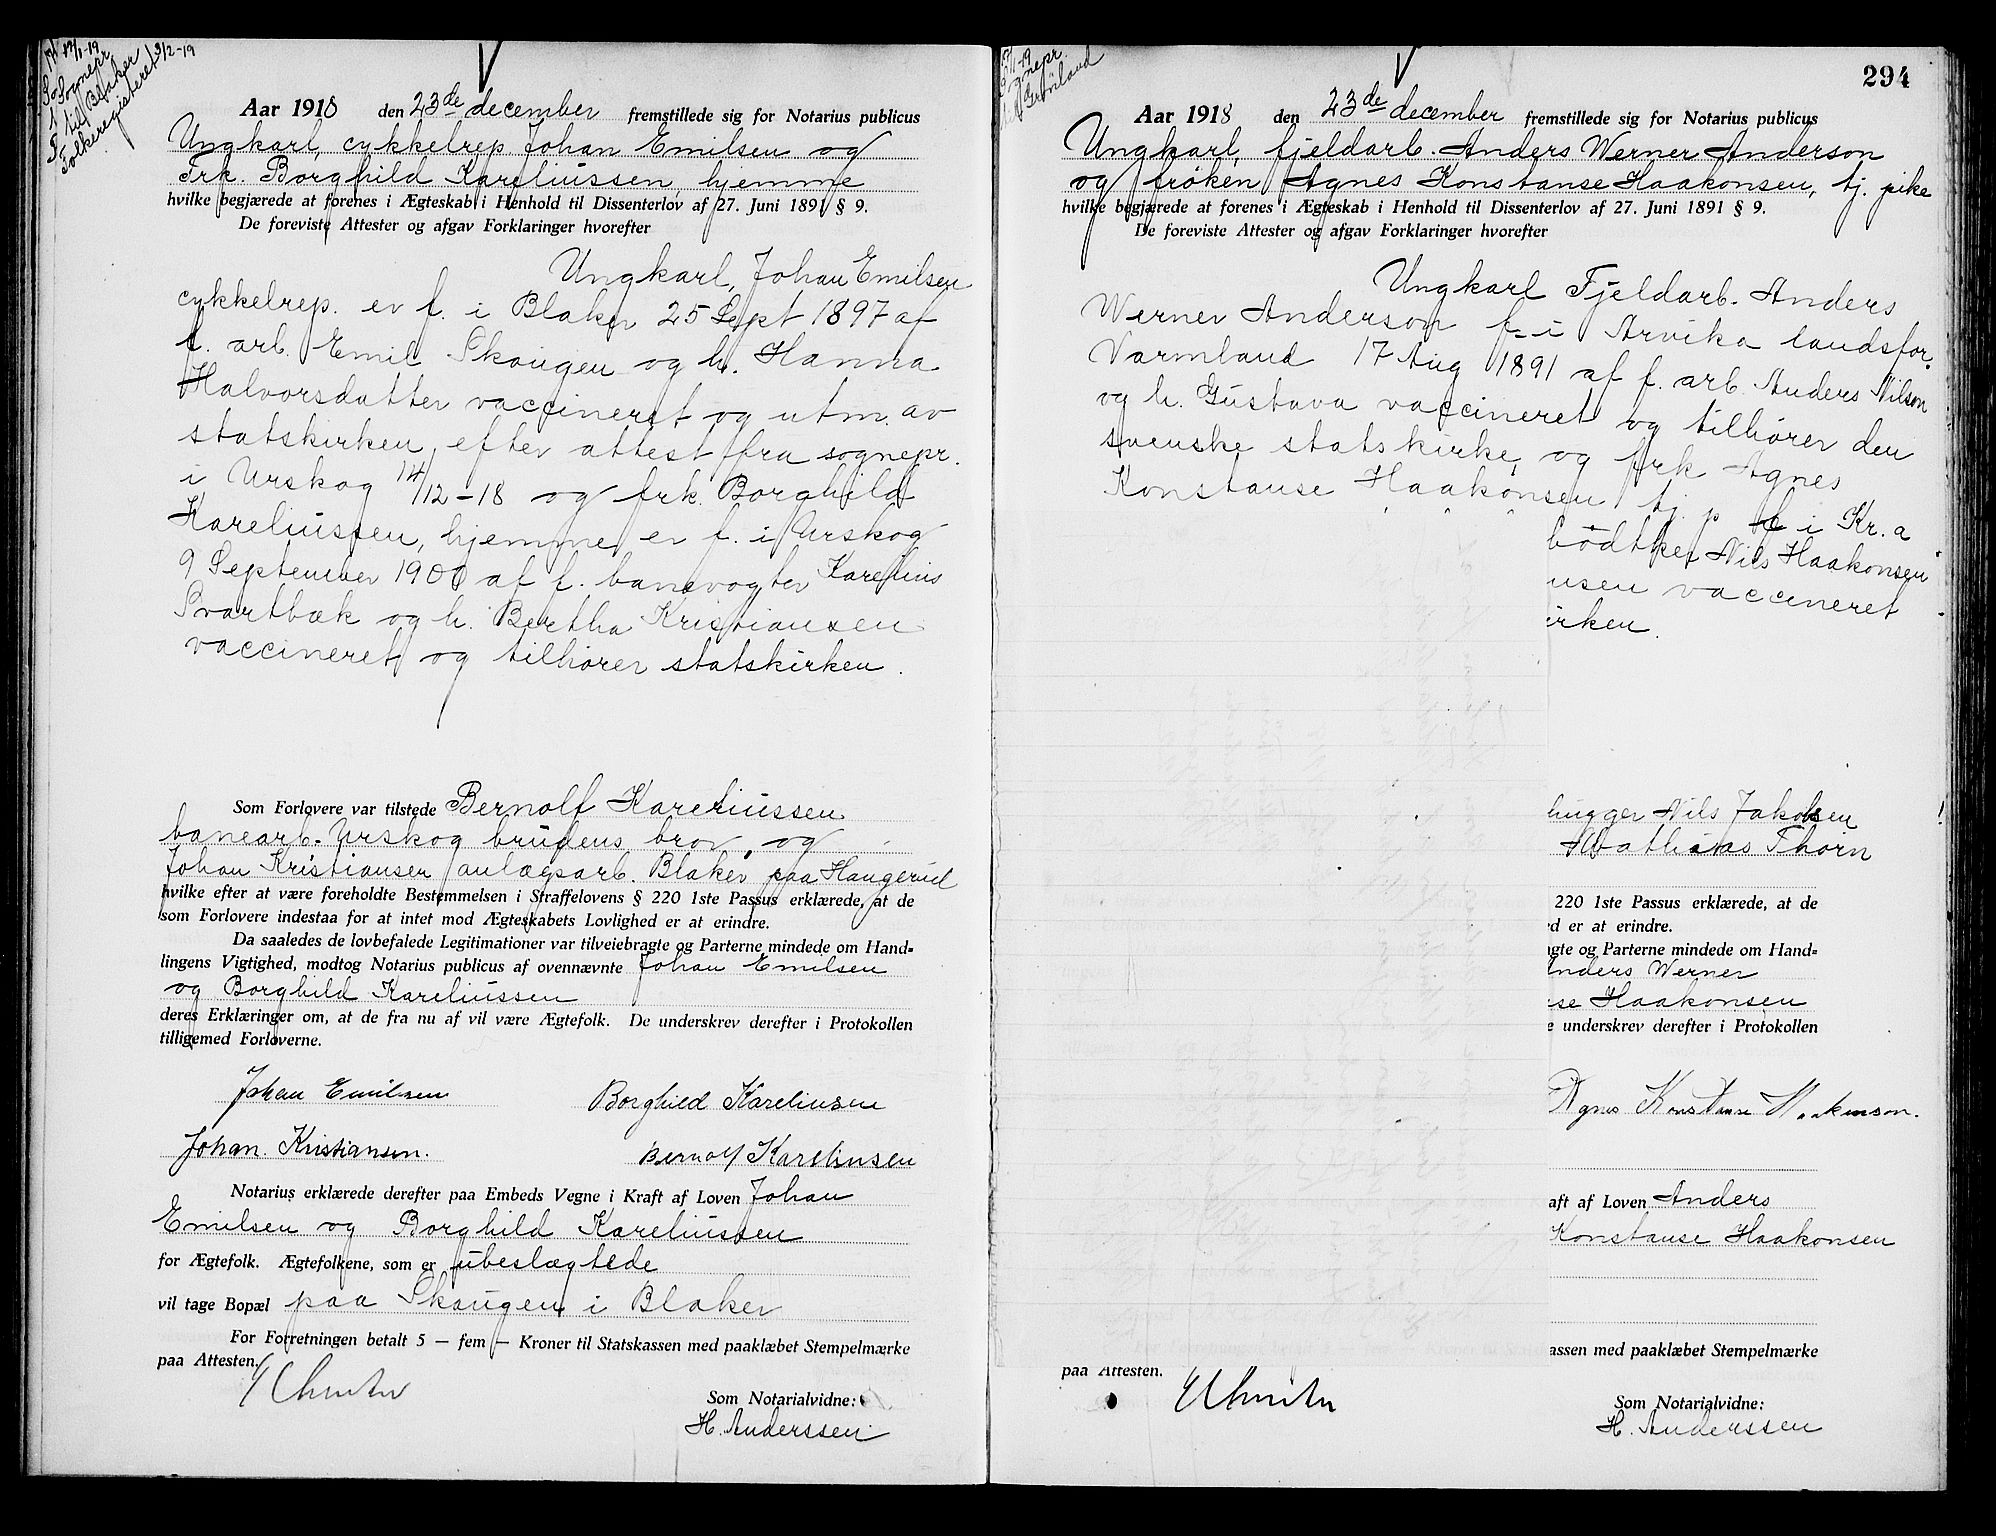 17/1-19
Sognepr.
til Blaker
Folkeregisteret 3/2-19
Aar 1918 den 23de december fremstillede sig for Notarius publicus
Ungkarl, cykkelrep. Johan Emilsen og
Frk. Borghild Kareliussen, hjemme
hvilke begjærede at forenes i Ægteskab i Henhold til Dissenterlov af 27. Juni 1891 § 9.
De foreviste Attester og afgav Forklaringer hvorefter
Ungkarl, Johan Emilsen
cykkelrep. er f. i Blaker 25 Sept 1897 af
f. arb. Emil Skaugen og h. Hanna
Halvorsdatter vaccineret og utm. av
statskirken efter attest fra sognepr.
i Urskog 14/12-18 og frk. Borghild
Kareliussen, hjemme er f. i Urskog
9 September 1900 af f. banevogter Karelius
Svartbæk og h. Bertha Kristiansen
vaccineret og tilhører statskirken.
Som Forlovere var tilstede Bernolf Kareliussen
banearb. Urskog brudens bror, og
Johan Kristiansen anlægsarb. Blaker paa Haugerud
hvilke efter at være foreholdte Bestemmelsen i Straffelovens § 220 1ste Passus erklærede, at de
som Forlovere indestaa for at intet mod Ægteskabets Lovlighed er at erindre.
Da saaledes de lovbefalede Legitimationer var tilveiebragte og Parterne mindede om Hand-
lingens Vigtighed, modtog Notarius publicus af ovennævnte Johan Emilsen
og Borghild Kareliussen
deres Erklæringer om, at de fra nu af vil være Ægtefolk. De underskrev derefter i Protokollen
tilligemed Forloverne.
Johan Emilsen Borghild Kareliusen
Johan. Kristiansen. Bernolf Kareliusen
Notarius erklærede derefter paa Embeds Vegne i Kraft af Loven Johan
Emilsen og Borghild Kareliussen
for Ægtefolk. Ægtefolkene, som er ubeslægtede
vil tage Bopæl paa Skaugen i Blaker
For Forretningen betalt 5 — fem — Kroner til Statskassen med paaklæbet Stempelmærke
paa Attesten.
Som Notarialvidne:
H. Anderssen
294
Grønland
Aar 1918 den 23de december fremstillede sig for Notarius publicus
Ungkarl, fjeldarb. Anders Werner Anderson
og frøken Agnes Konstanse Haakonsen, tj. pike
hvilke begjærede at forenes i Ægteskab i Henhold til Dissenterlov af 27. Juni 1891 § 9.
De foreviste Attester og afgav Forklaringer hvorefter
Ungkarl Fjeldarb. Anders
Werner Anderson f. i Arvika landsfor.
Varmland 17 Aug 1891 af f. arb. Anders Nilson
og h. Gustava vaccineret og tilhører den
svenske statskirke, og frk Agnes
Konstanse Haakonsen tj. p f. i Kr.a
bødtker Nils Haakonsen
nsen vaccineret
irken.
hugger Nils Jakobsen
Mathias Thorn
220 1ste Passus erklærede, at de
d er at erindre.
gte og Parterne mindede om Hand-
Anders Werner
se Haakonsen
e underskrev derefter i Protokollen
Agnes Konstanse Haakonson.
aft af Loven Anders
Konstanse Haakonsen
assen med paaklæbet Stempelmærke
paa Attesten.
Som Notarialvidne:
H. Anderssen